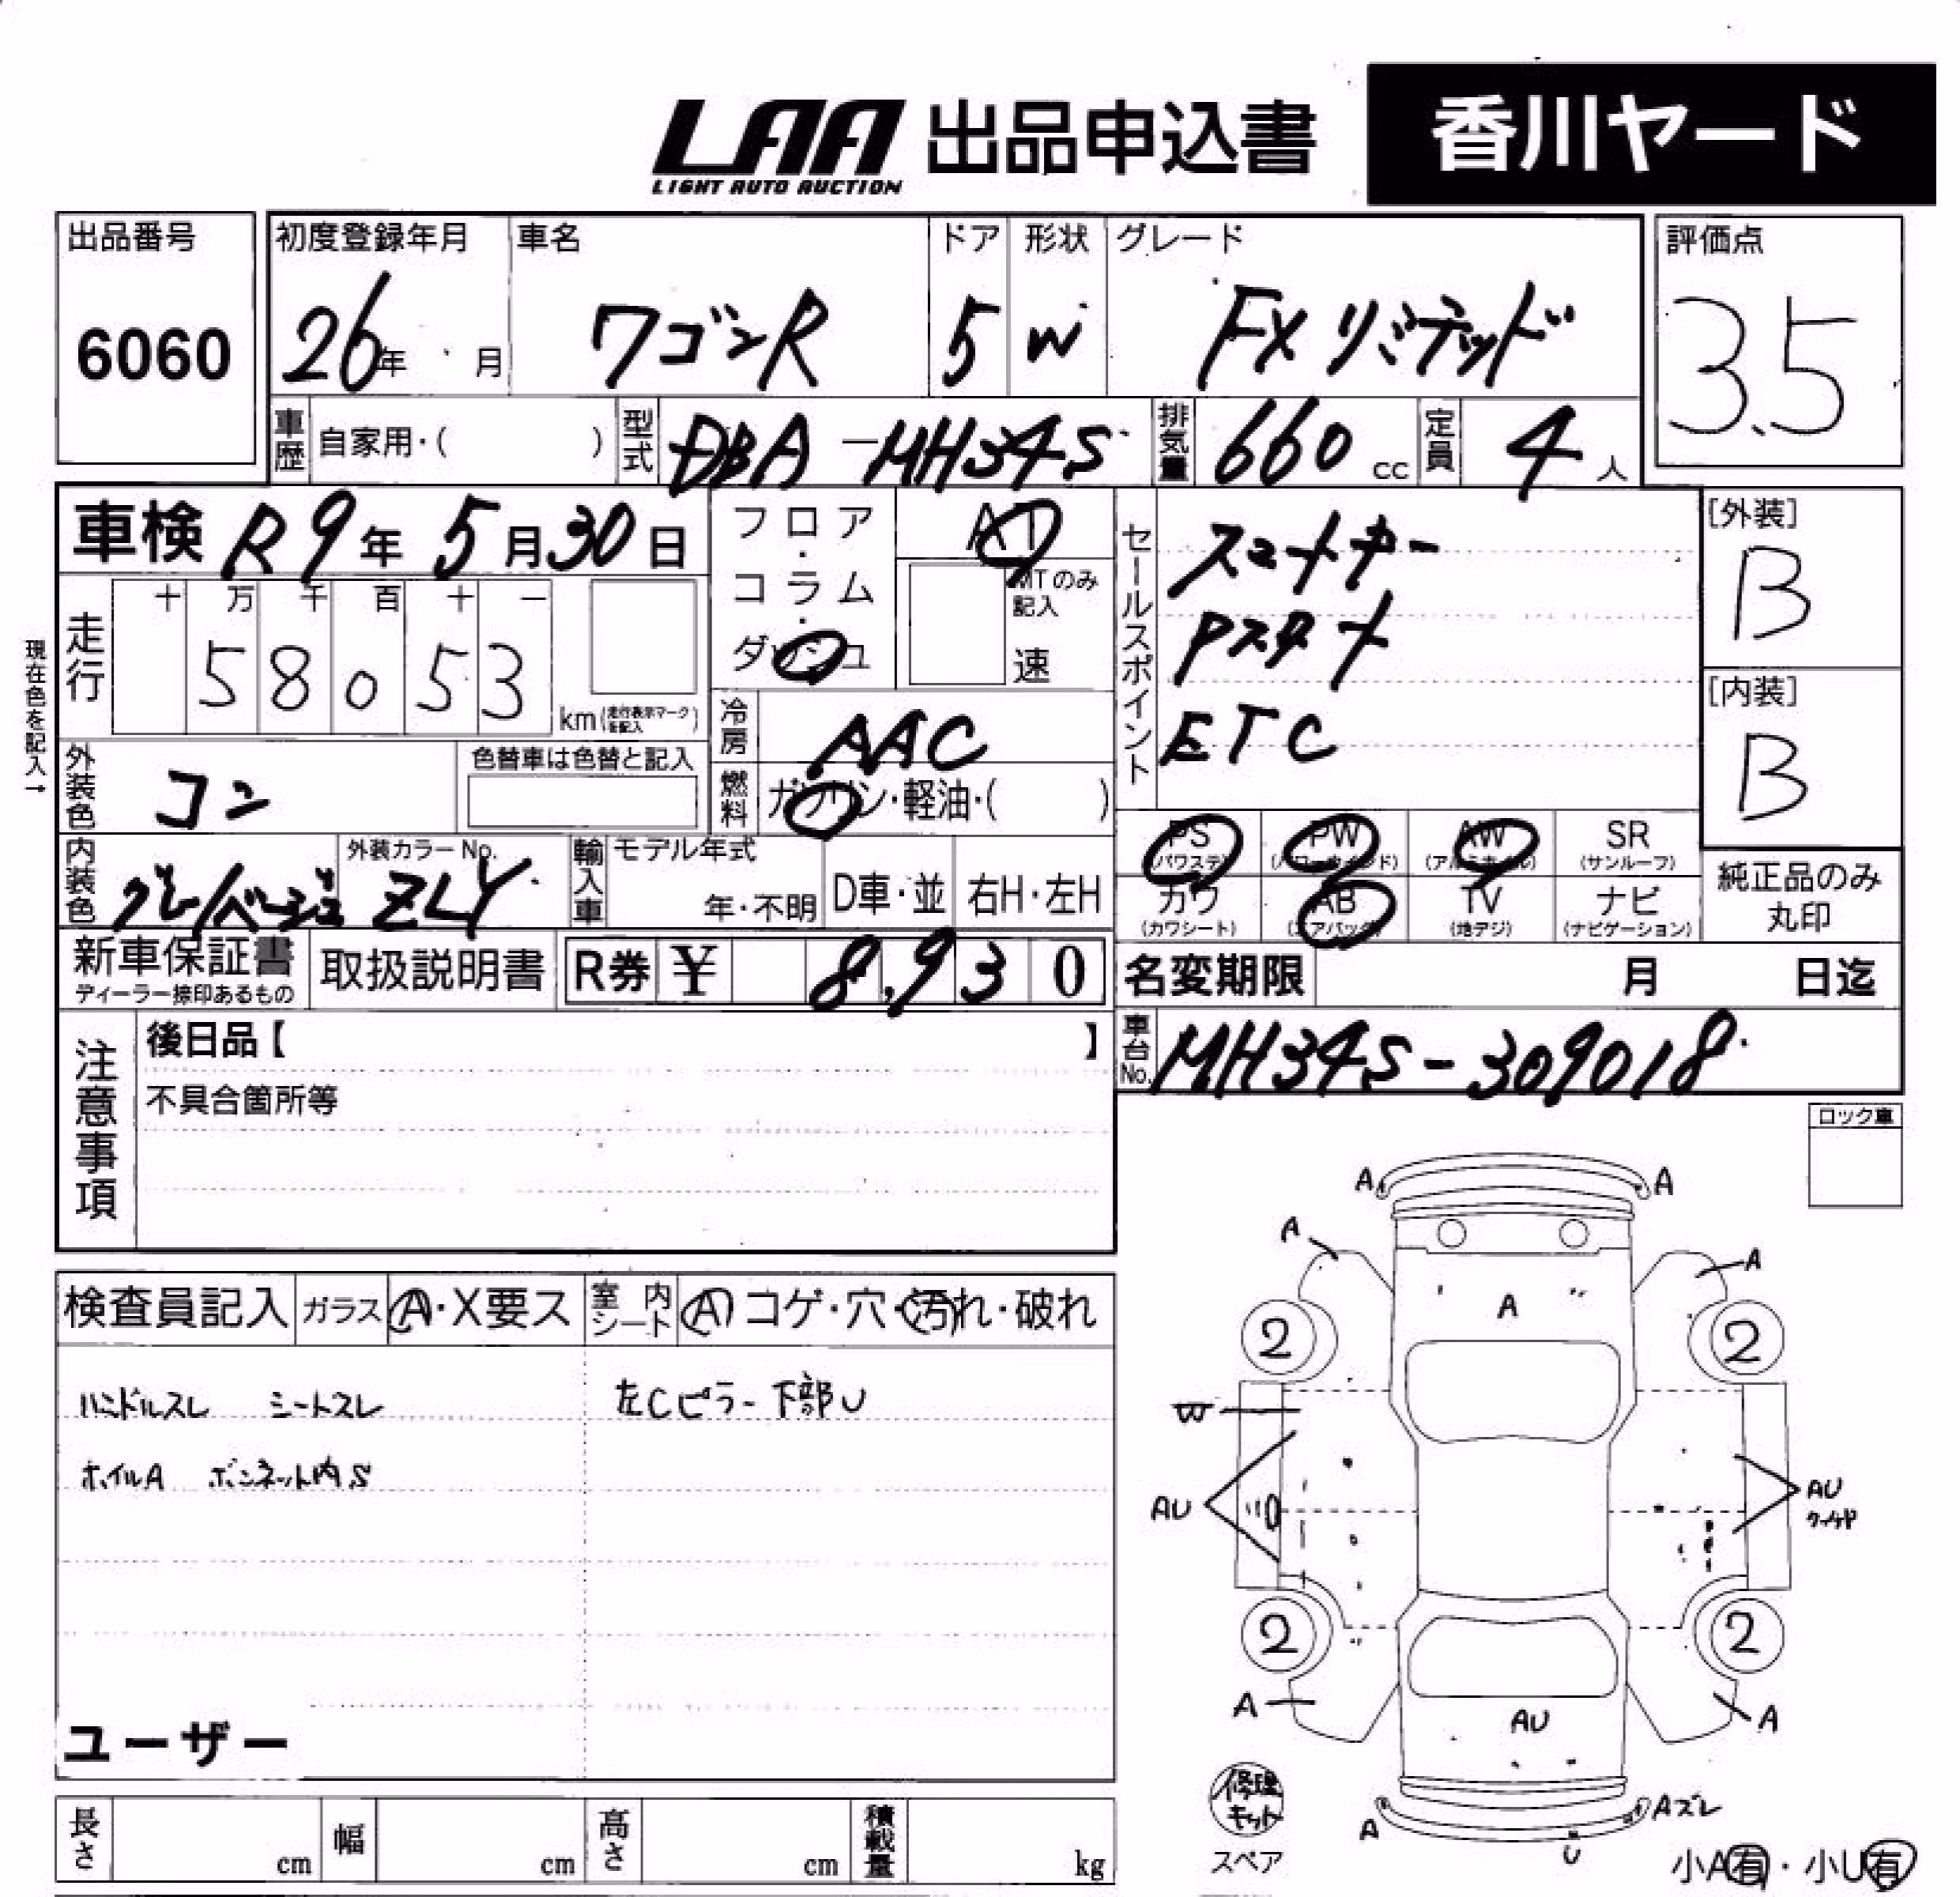 LAA 出品申込書 香川ヤード
LIGHT AUTO AUCTION
出品番号 初度登録年月 車名 ドア 形状 グレード 評価点
6060 26年 月 ワゴンR 5 W FXリミテッド 3.5
車歴 自家用・( ) 型式 DBA-MH34S 排気量 660 cc 定員 4 人
車検 R9年 5月30日 フロア・コラム・ダッシュ AT
MTのみ記入 速
セールスポイント スマートキー
Pスタート
ETC
[外装] B
[内装] B
現在色を記入→
走行 十 万 千 百 十 一
5 8 0 5 3 km (走行表示マークを記入)
冷房 AAC
外装色 コン 色替車は色替と記入
燃料 ガソリン・軽油・( )
PS (パワステ) PW (パワーウインド) AW (アルミホイル) SR (サンルーフ)
カワ (カワシート) AB (エアバッグ) TV (地デジ) ナビ (ナビゲーション)
純正品のみ丸印
内装色 グレー/ベージュ 外装カラーNo. ZLY 輸入車 モデル年式 年・不明 D車・並 右H・左H
新車保証書 ディーラー捺印あるもの 取扱説明書 R券 ¥ 8,930
名変期限 月 日迄
注意事項 後日品【 】
不具合箇所等
車台No. MH34S-309018
ロック車
検査員記入 ガラス A・X要ス 室内シート A コゲ・穴・汚れ・破れ
ハンドルスレ シートスレ 左Cピラー下部U
ホイルA ボンネット内S
ユーザー
A A
A A
A
2 2
W
AU AU
2 2
A A
AU
修理キット
スペア
A Aズレ
U
小A有・小U有
長さ cm 幅 cm 高さ cm 積載量 kg